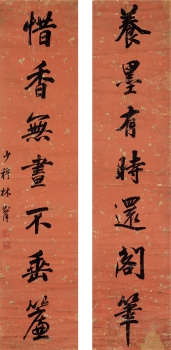 養墨有時還閣筆
惜香無晝不垂簾
少穆林